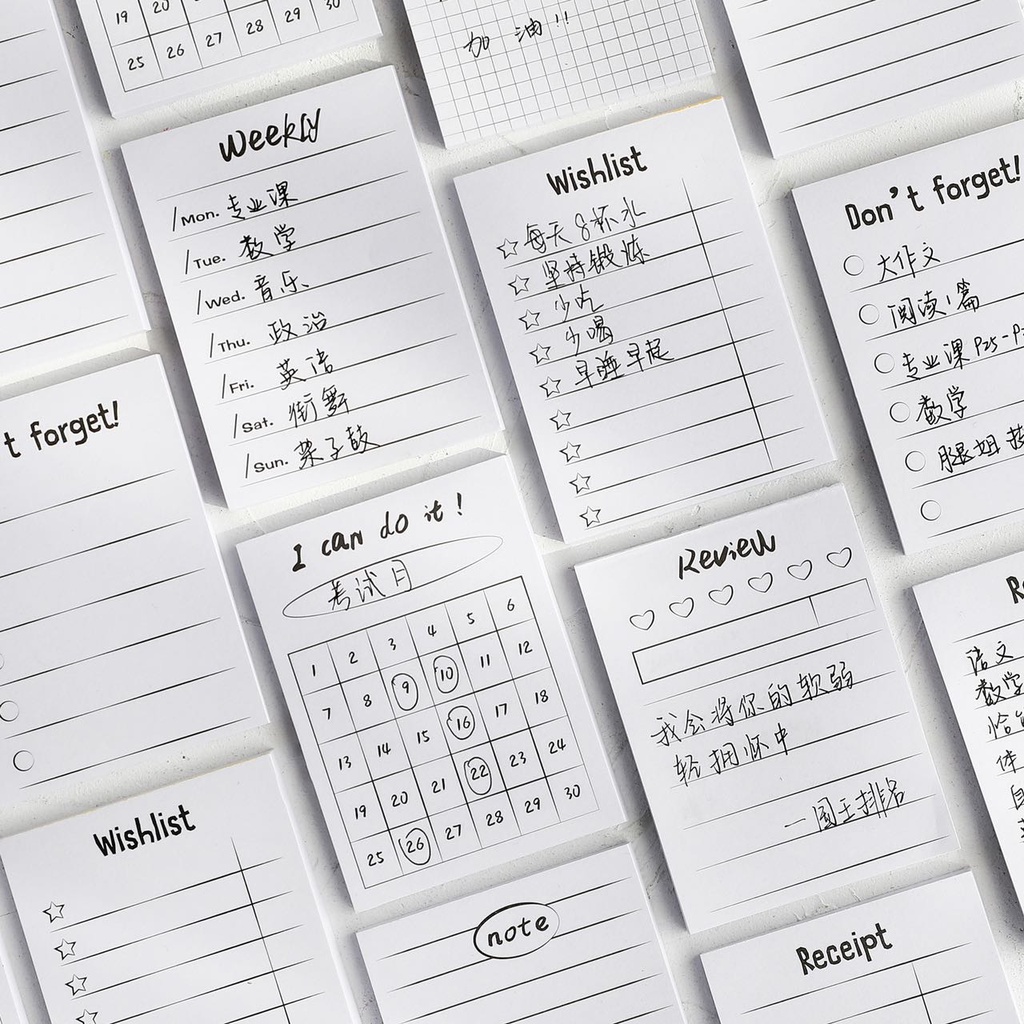 19 20 28 29 30
25 26 27
加油!!
Weekly
/Mon. 专业课
/Tue. 数学
/Wed. 音乐
/Thu. 政治
/Fri. 英语
/Sat. 街舞
/Sun. 架子鼓
Wishlist
每天8杯水
坚持锻炼
少吃
多喝
早睡早起
Don't forget!
大作文
阅读1篇
专业课 P25-P
数学
腿姐
t forget!
I can do it!
考试日
1 2 3 4 5 6
7 8 9 10 11 12
13 14 15 16 17 18
19 20 21 22 23 24
25 26 27 28 29 30
Review
我会将你的软弱
轻拥怀中
—国王排名
R
语文
数学
体
Wishlist
note
Receipt